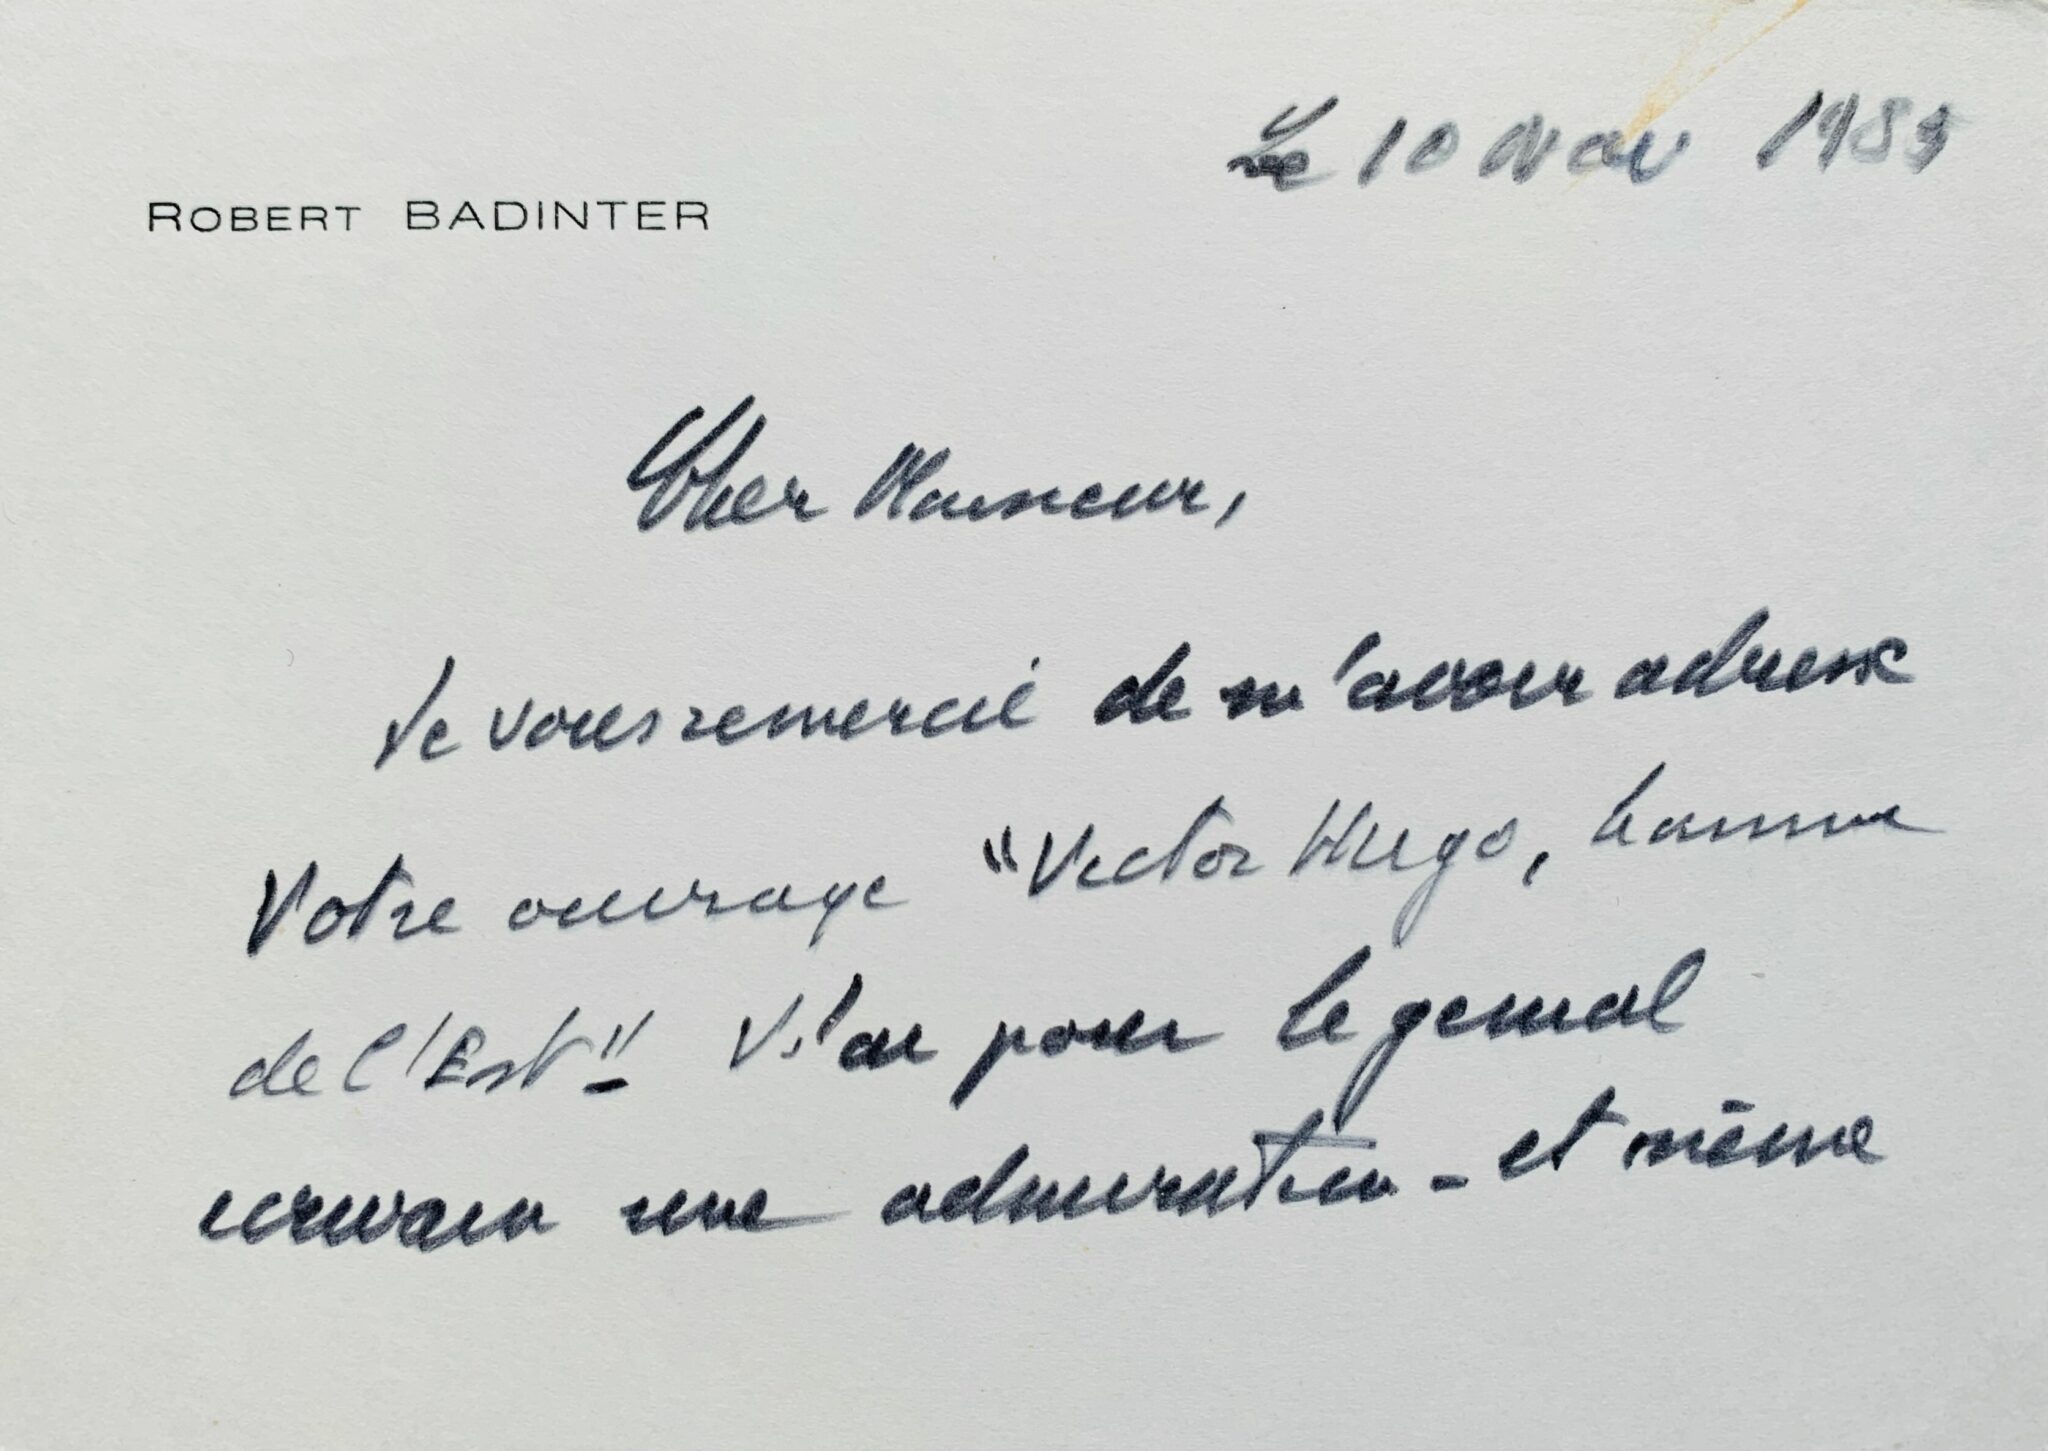 Le 10 Nov 198
ROBERT BADINTER
Cher Monsieur,
Je vous remercie de m'avoir adressé
Votre ouvrage "Victor Hugo, homme
de l'Est"- J'ai pour le génial
écrivain une admiration - et même